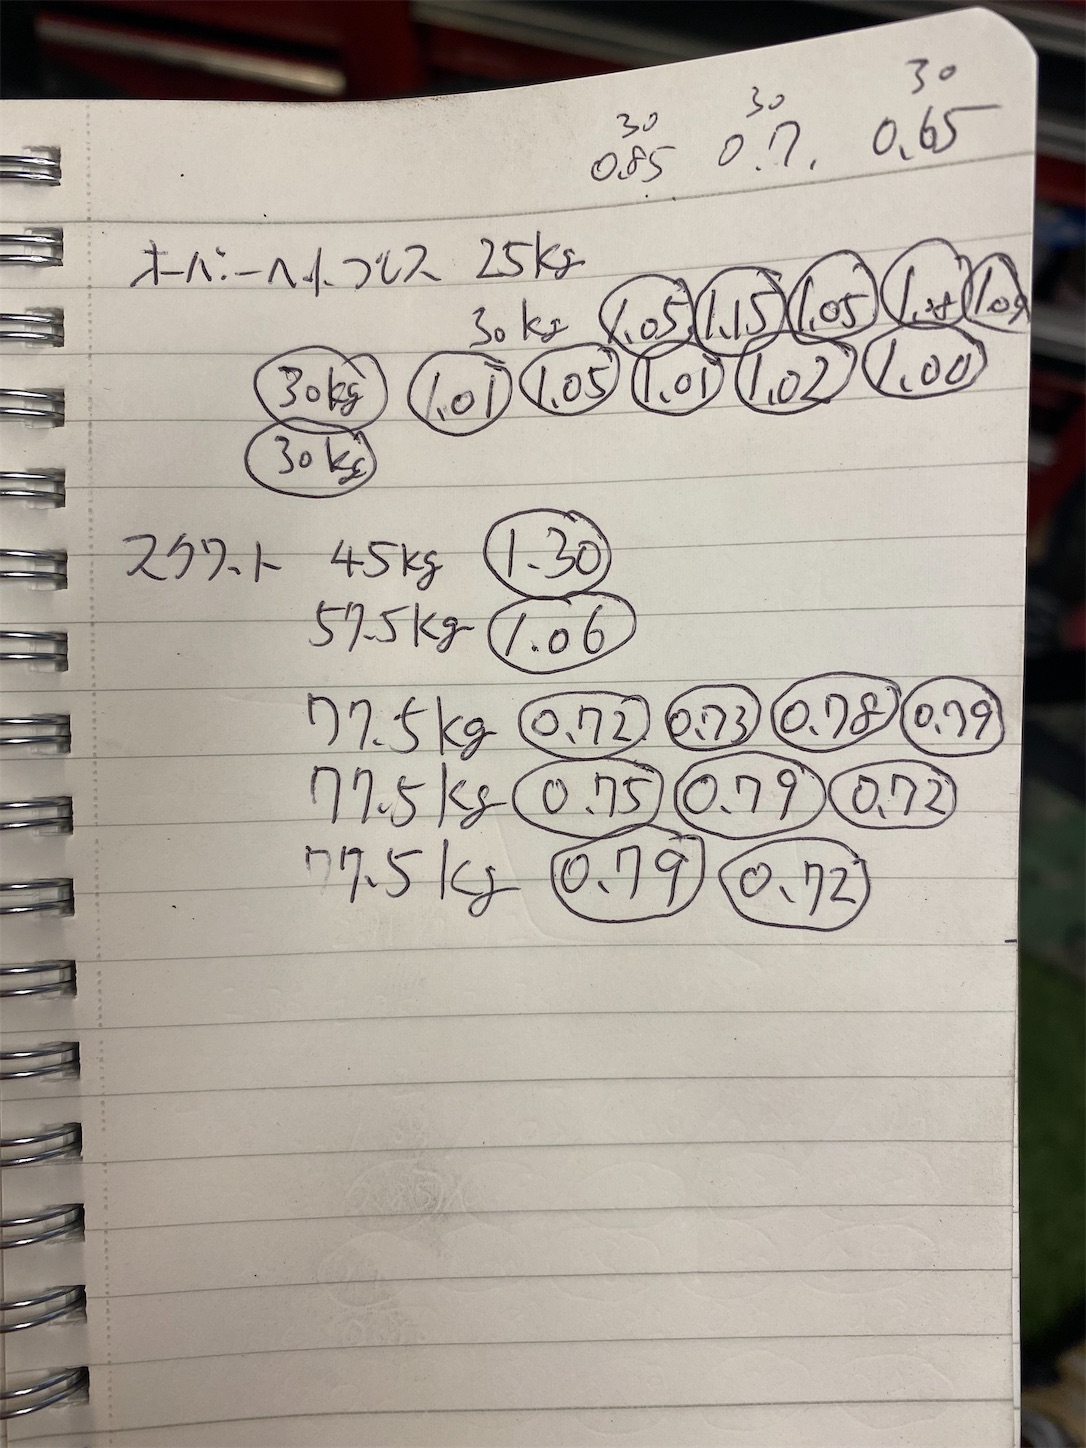 30 30 30
0.85 0.7. 0.65
オーバーヘッドプレス 25kg
30kg 1.05 1.15 1.05
30kg 1.01 1.05 1.01 1.02 1.00
30kg
スクワット 45kg 1.30
57.5kg 1.06
77.5kg 0.72 0.73 0.78 0.79
77.5kg 0.75 0.79 0.72
77.5kg 0.79 0.72